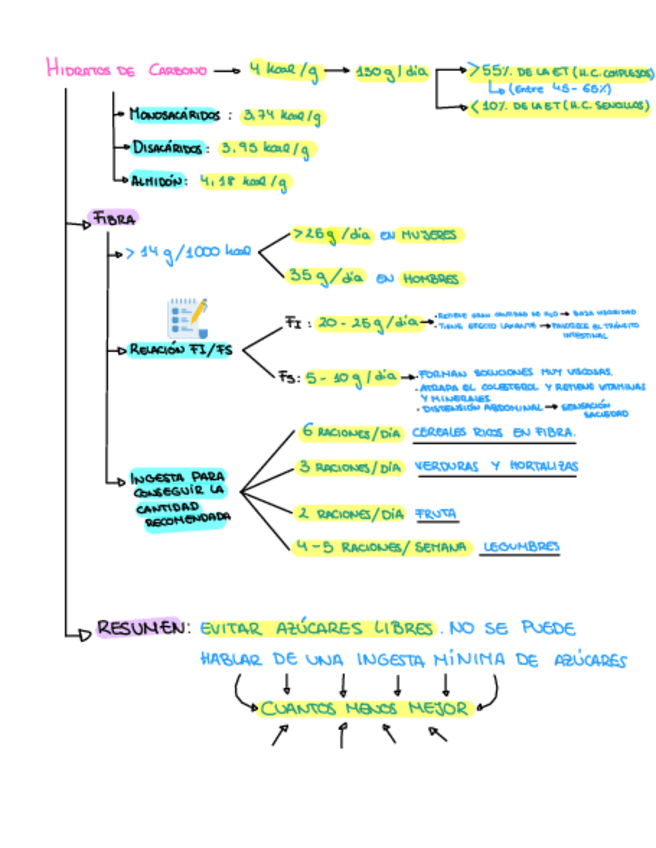 HIDRATOS DE CARBONO → 4 kcal/g → 130 g/día → >55% DE LA ET (H.C. COMPLEJOS)
(Entre 45-65%)
<10% DE LA ET (H.C. SENCILLOS)
MONOSACÁRIDOS: 3,74 kcal/g
DISACÁRIDOS: 3,95 kcal/g
ALMIDÓN: 4,18 kcal/g
FIBRA
> 14 g/1000 kcal
>25g/día EN MUJERES
35g/día EN HOMBRES
RELACIÓN FI/FS
FI: 20-25g/día →
· RETIENE GRAN CANTIDAD DE H2O → BAJA VISCOSIDAD
· TIENE EFECTO LAXANTE → FAVORECE EL TRÁNSITO
INTESTINAL
FS: 5-10g/día →
· FORMAN SOLUCIONES MUY VISCOSAS.
· ATRAPA EL COLESTEROL Y RETIENE VITAMINAS
Y MINERALES
· DISTENSIÓN ABDOMINAL → SENSACIÓN
SACIEDAD
INGESTA PARA
CONSEGUIR LA
CANTIDAD
RECOMENDADA
6 RACIONES/DÍA CEREALES RICOS EN FIBRA.
3 RACIONES/DÍA VERDURAS Y HORTALIZAS
2 RACIONES/DÍA FRUTA
4-5 RACIONES/SEMANA LEGUMBRES
RESUMEN: EVITAR AZÚCARES LIBRES. NO SE PUEDE
HABLAR DE UNA INGESTA MÍNIMA DE AZÚCARES
CUANTOS MENOS MEJOR